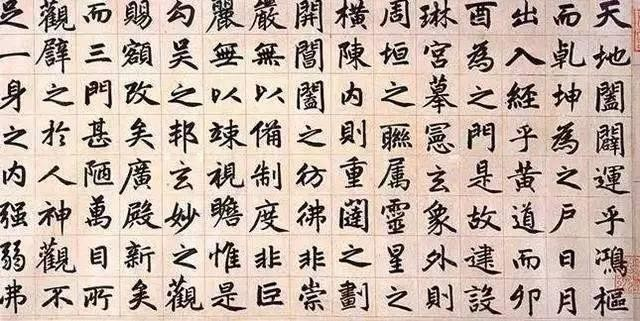 天地闔闢運乎鴻樞
而乾坤為之戶日月
出入經乎黃道而卯
酉為之門是故建設
琳宮摹憲玄象外則
周垣之聯属靈星之
橫陳內則重闥之劃
開閶闔之彷彿非崇
嚴無以備制度非巨
麗無以竦視瞻惟是
勾吳之邦玄妙之觀
賜額改矣廣殿新矣
而三門甚陋萬目所
觀辟之於人神觀不
足一身之内强弱弗